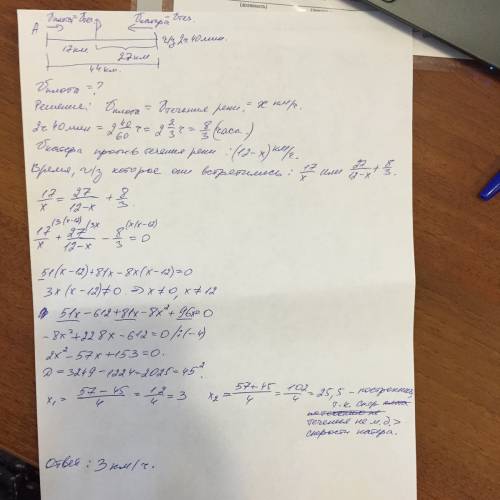 A
ч/з 2ч 40 мин.
17км
27км
44 км.
Vплота = ?
Решение: Vплота = Vтечения реки = x км/ч.
2ч 40 мин = 2 40/60 ч = 2 2/3 ч = 8/3 (часа.)
Vкатера против течения реки : (12-x) км/ч.
Время, ч/з которое они встретились: 17/x или 27/12-x + 8/3.
17/x = 27/12-x + 8/3.
17/x + 27/12-x - 8/3 = 0
51(x-12)+81x-8x(x-12)=0
3x(x-12)≠0 ⇒ x≠0, x≠12
51x-612+81x-8x²+96x=0
-8x²+228x-612=0 /:(-4)
2x²-57x+153=0.
D=3249-1224=2025=45².
x₁ = 57-45/4 = 12/4 = 3 x₂ = 57+45/4 = 102/4 = 25,5 - посторонний,
т.к. скор
течения не м.д. >
скорости катера.
Ответ: 3 км/ч.